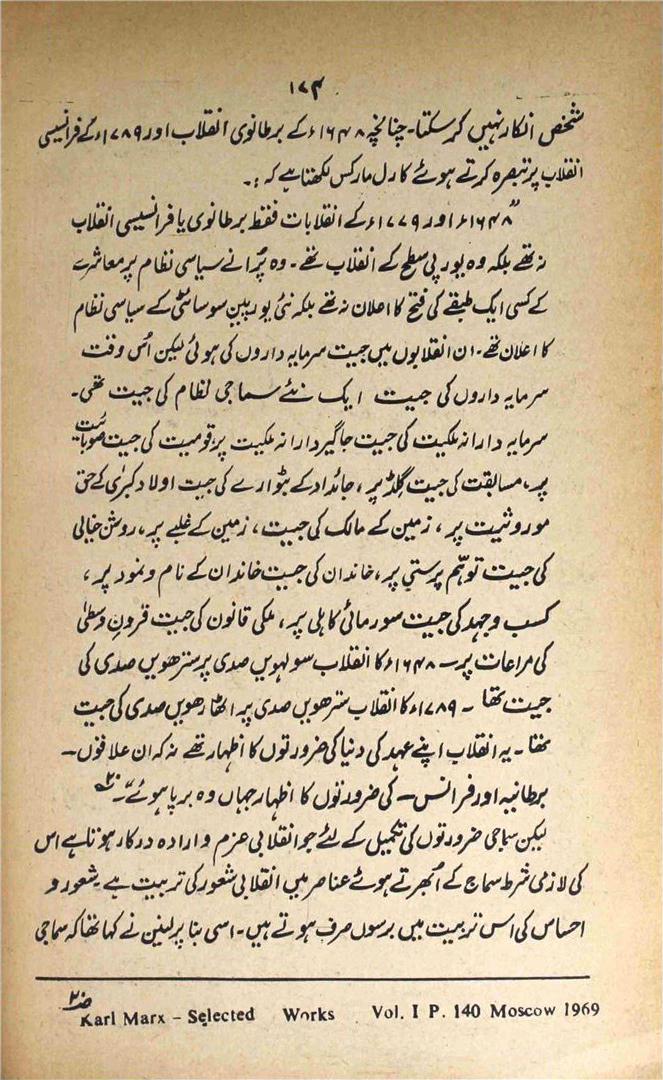 ۱۷۴
شخص انکار نہیں کر سکتا۔ چنانچہ ۱۶۴۸ء کے برطانوی انقلاب اور ۱۷۸۹ء کے فرانسیسی
انقلاب پر تبصرہ کرتے ہوئے کارل مارکس لکھتا ہے کہ :۔
”۱۶۴۸ء اور ۱۷۷۹ء کے انقلابات فقط برطانوی یا فرانسیسی انقلاب
نہ تھے بلکہ وہ یورپی سطح کے انقلاب تھے۔ وہ پُرانے سیاسی نظام پر معاشرے
کے کسی ایک طبقے کی فتح کا اعلان نہ تھے بلکہ نئی یورپین سوسائٹی کے سیاسی نظام
کا اعلان تھے۔ ان انقلابوں میں جیت سرمایہ داروں کی ہوئی لیکن اُس وقت
سرمایہ داروں کی جیت ایک نئے سماجی نظام کی جیت تھی۔
سرمایہ دارانہ ملکیت کی جیت جاگیردارانہ ملکیت پر، قومیت کی جیت صوبائیت
پر، مسابقت کی جیت گِلڈ پر، جائداد کے بٹوارے کی جیت اولاد کبریٰ کے حق
موروثیت پر، زمین کے مالک کی جیت، زمین کے غلبے پر، روشن خیالی
کی جیت توہّم پرستی پر، خاندان کی جیت خاندان کے نام و نمود پر،
کسب و جہد کی جیت سورمائی کاہلی پر، ملکی قانون کی جیت قرونِ وسطیٰ
کی مراعات پر — ۱۶۴۸ء کا انقلاب سولہویں صدی پر سترھویں صدی کی
جیت تھا ۔ ۱۷۸۹ء کا انقلاب سترھویں صدی پر اٹھارھویں صدی کی جیت
تھا ۔ یہ انقلاب اپنے عہد کی دنیا کی ضرورتوں کا اظہار تھے نہ کہ ان علاقوں —
برطانیہ اور فرانس — کی ضرورتوں کا اظہار جہاں وہ برپا ہوئے“۔ ۲۰؎
لیکن سماجی ضرورتوں کی تکمیل کے لئے جو انقلابی عزم و ارادہ درکار ہوتا ہے اس
کی لازمی شرط سماج کے اُبھرتے ہوئے عناصر میں انقلابی شعور کی تربیت ہے۔ شعور و
احساس کی اس تربیت میں برسوں صرف ہوتے ہیں۔ اسی بنا پر لینن نے کہا تھا کہ سماجی
Karl Marx – Selected Works Vol. I P. 140 Moscow 1969